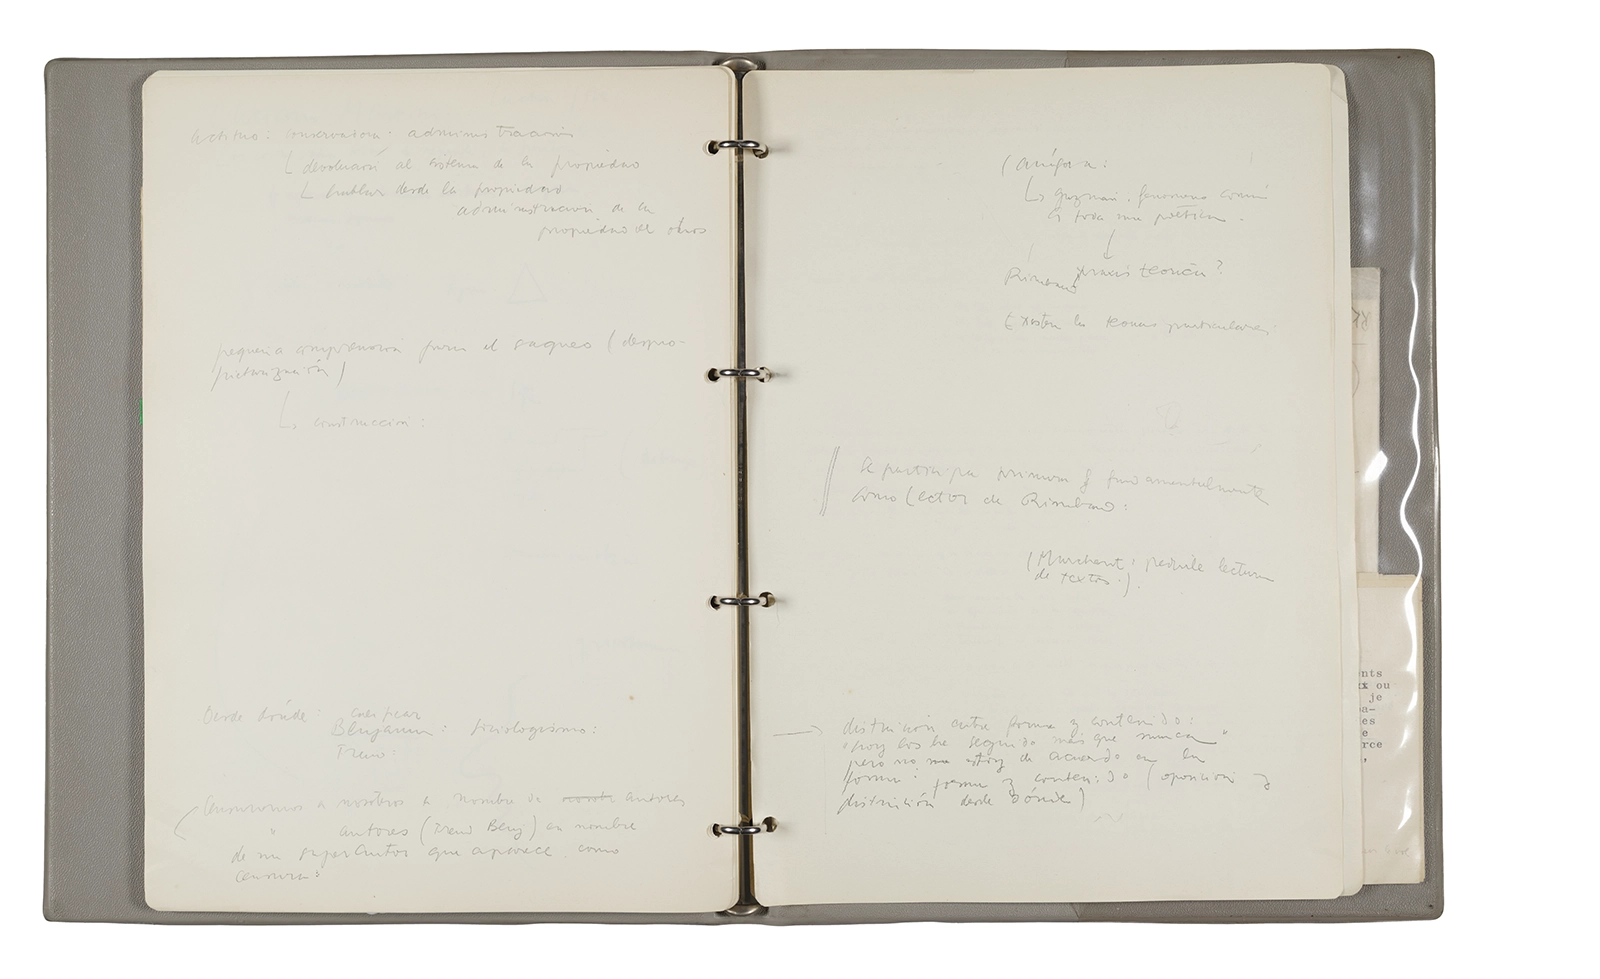 actitud: conservadora: administración
devolución al sistema de la propiedad
hablar desde la propiedad
administración de la
propiedad de otros
pequeña comprensión para el saqueo (despro-
pietarización)
construcción:
Desde dónde:
Benjamin: fisiologismo:
Freud:
Censuramos a nosotros a nombre de autores
" autores (Freud Benj) en nombre
de un superautor que aparece como
censura:
Lo guzmán. fenómeno común
a toda una poética.
praxis teórica?
Rimbaud
Existen las teorías particulares:
se participa primero y fundamentalmente
como lector de Rimbaud:
(Marchant: lectura
de textos.).
distinción entre forma y contenido:
"hoy los he seguido más que nunca"
pero no me estoy de acuerdo en la
forma: forma y contenido (oposición y
distinción desde dónde)
nts
xx ou
je
a-
es
e
rce
,